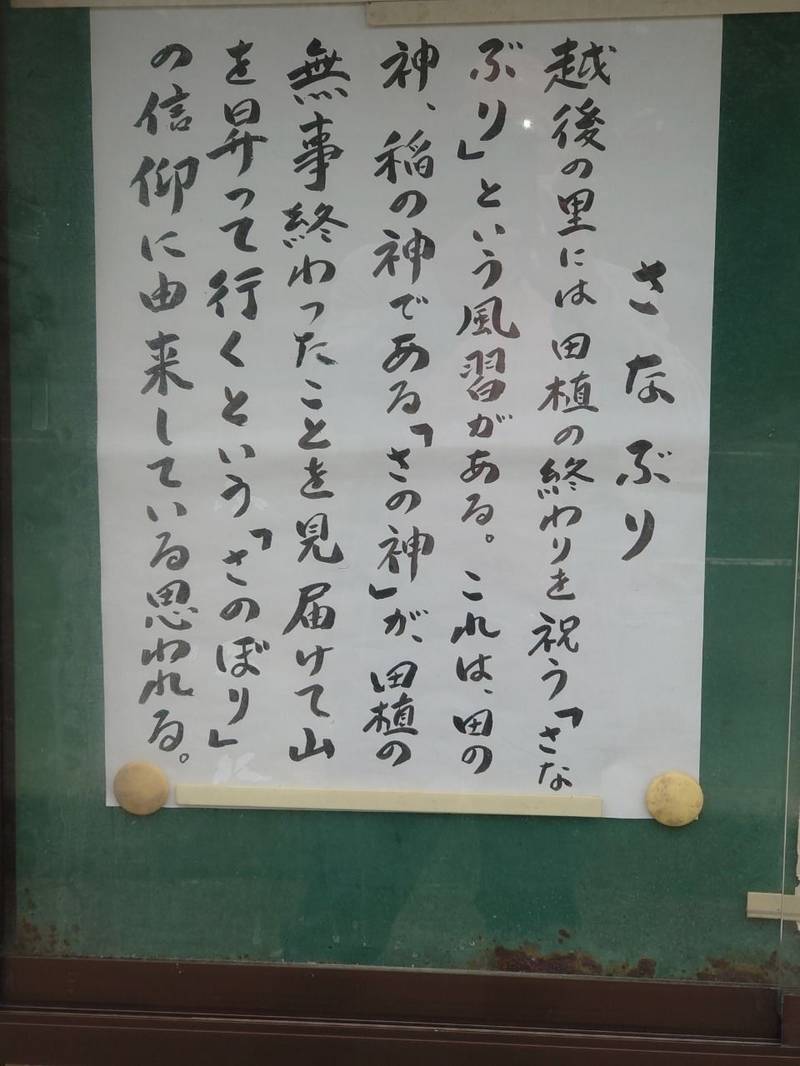 さなぶり
越後の里には田植の終わりを祝う「さな
ぶり」という風習がある。これは、田の
神、稲の神である「さの神」が、田植の
無事終わったことを見届けて山
を昇って行くという「さのぼり」
の信仰に由来している思われる。